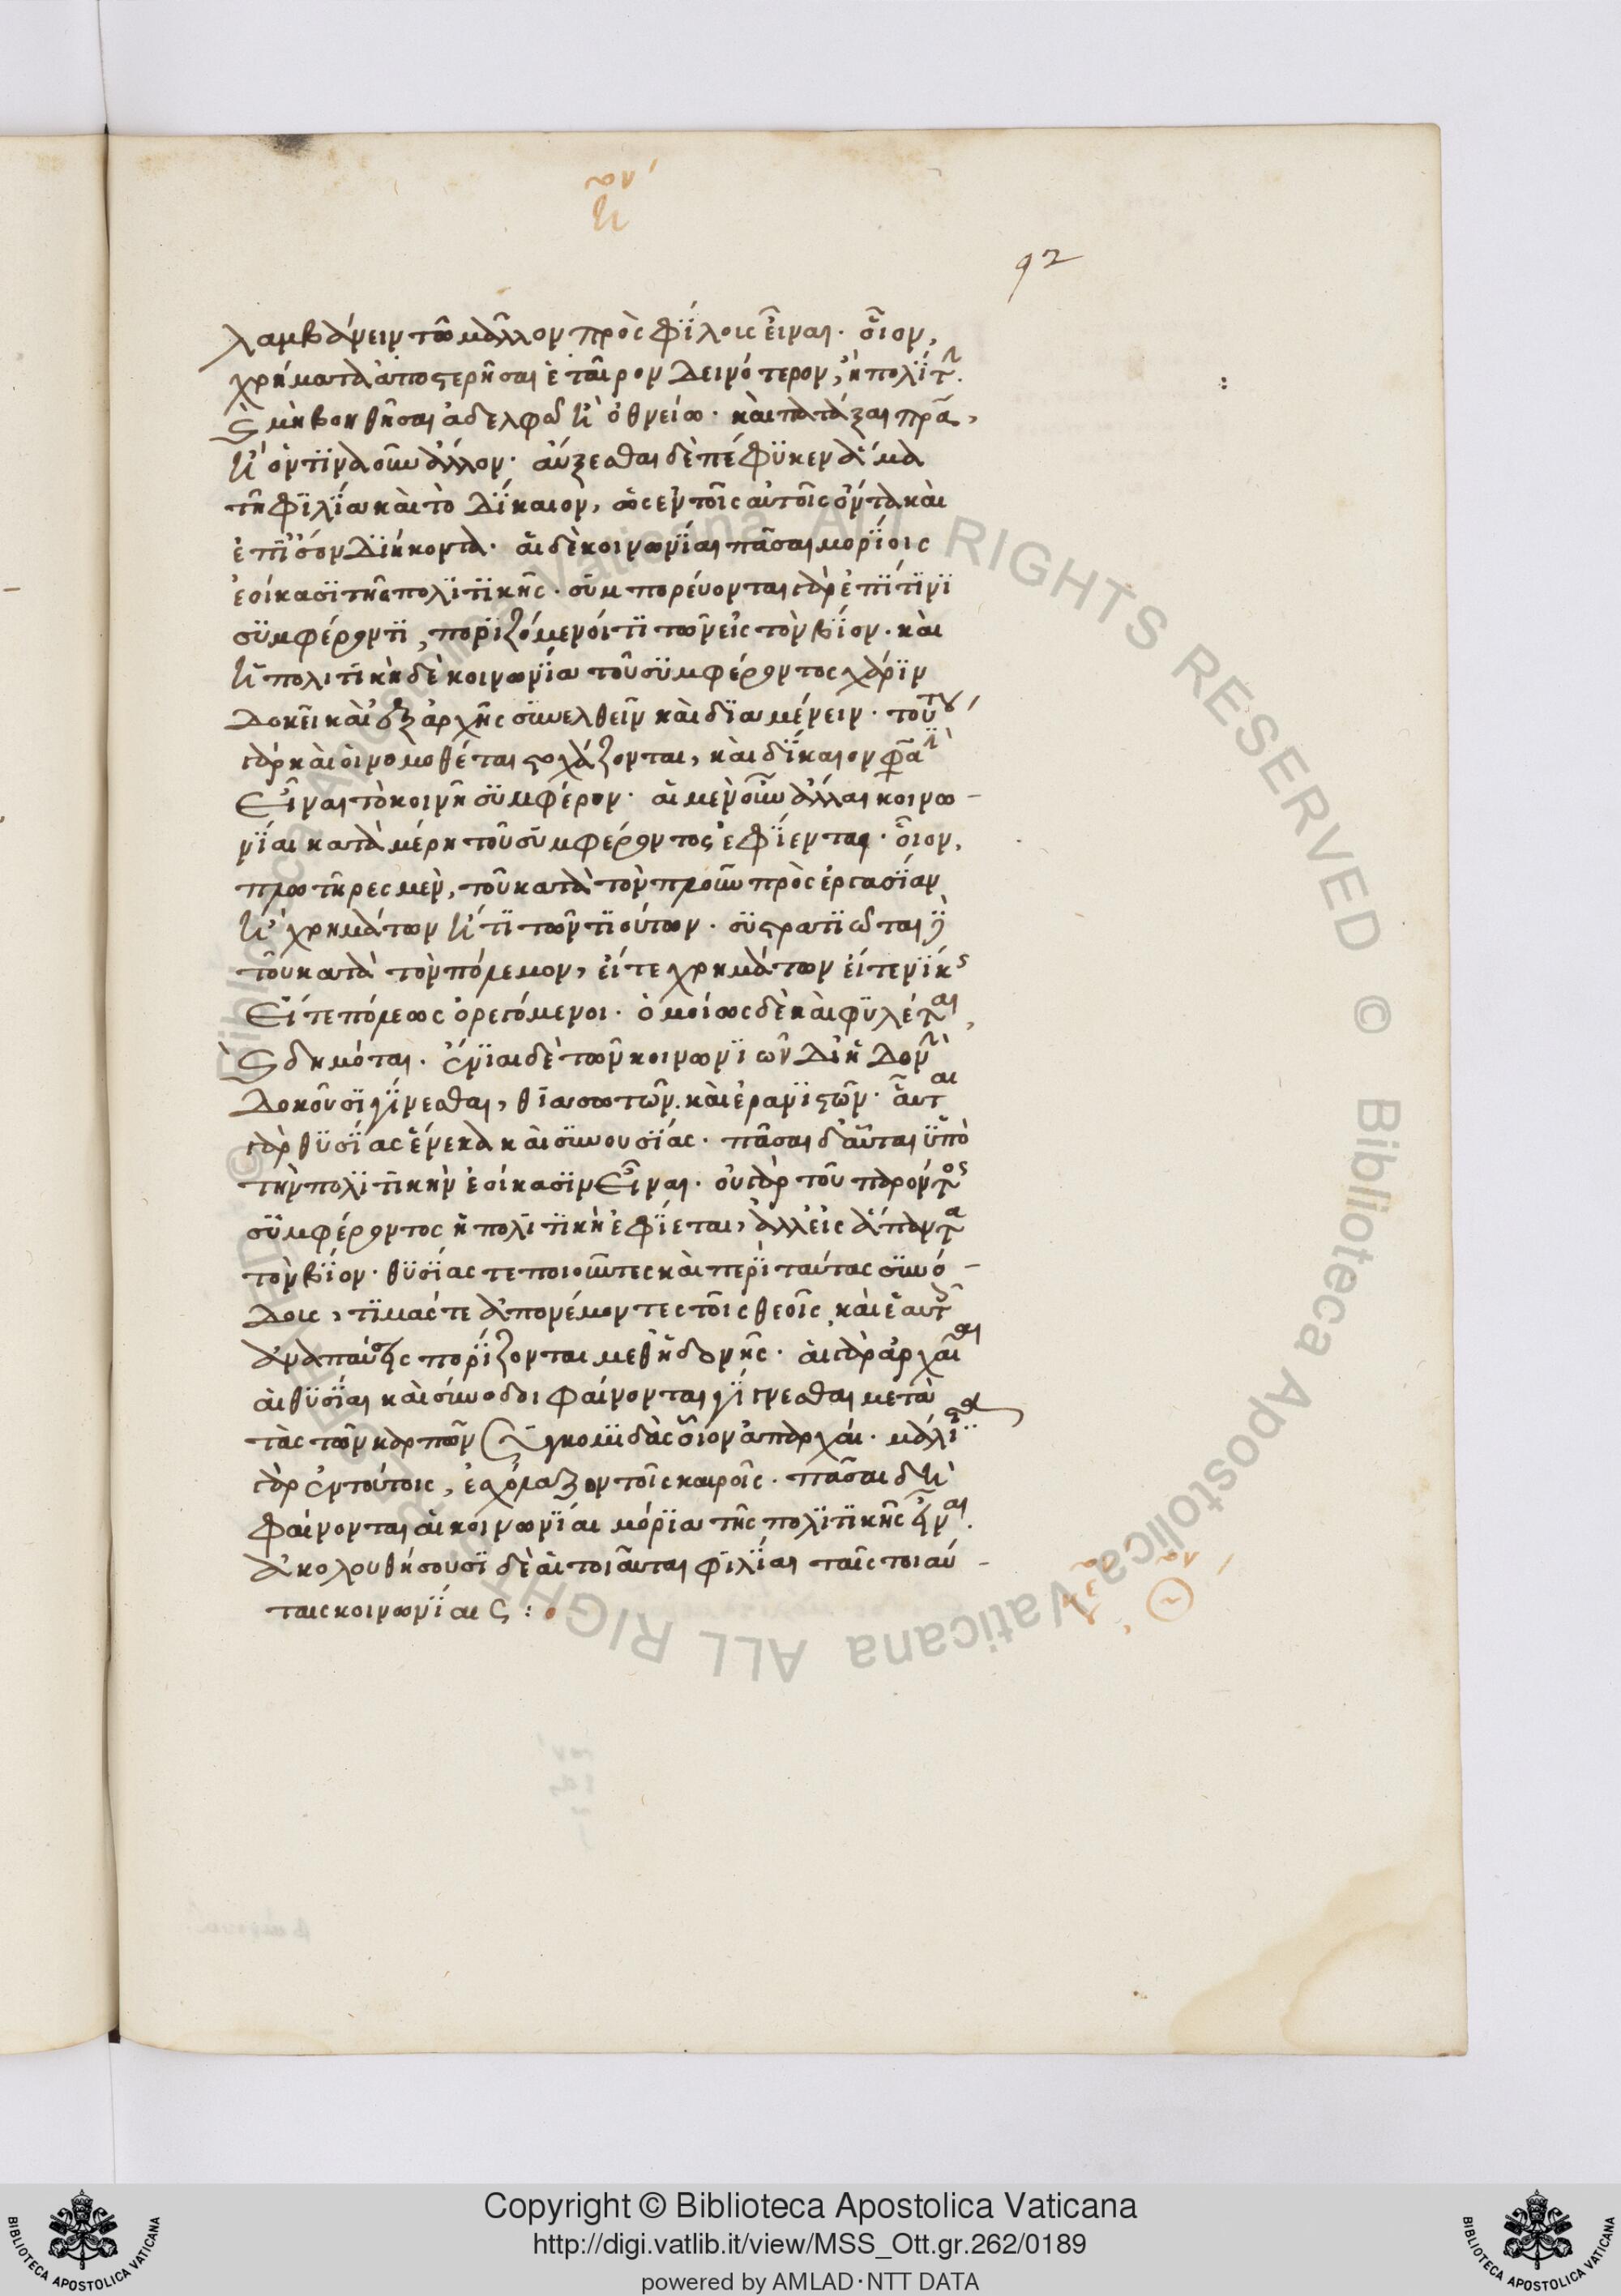 92
λαμβάνειν τῶ μᾶλλον πρὸς φίλοις εἶναι. οἷον,
χρήματα ἀποστερῆσαι ἑταῖρον δεινότερον, ἢ πολίτ.
καὶ μὴ βοηθῆσαι ἀδελφῶ ἢ ὀθνείω. καὶ πατάξαι πρα,
ἢ ὁντιναοῦν ἄλλον. αὔξεσθαι δὲ πέφυκεν ἅμα
τῆ φιλία καὶ τὸ δίκαιον, ὡς ἐν τοῖς αὐτοῖς ὄντα καὶ
ἐπίσον διήκοντα. αἱ δὲ κοινωνίαι πᾶσαι μορίοις
ἐοίκασι τῆς πολιτικῆς. συμπορεύονται γὰρ ἐπί τινι
συμφέροντι, ποριζόμενοί τι τῶν εἰς τὸν βίον. καὶ
ἡ πολιτικὴ δὲ κοινωνία τοῦ συμφέροντος χάριν
δοκεῖ καὶ ἐξ ἀρχῆς συνελθεῖν καὶ διαμένειν. τούτου
γὰρ καὶ οἱ νομοθέται στοχάζονται, καὶ δίκαιον φασὶ
εἶναι τὸ κοινῆ συμφέρον. αἱ μὲν οὖν ἄλλαι κοινω-
νίαι κατὰ μέρη τοῦ συμφέροντος ἐφίενται. οἷον,
πλωτῆρες μὲν, τοῦ κατὰ τὸν πλοῦν πρὸς ἐργασίαν
ἢ χρημάτων ἤ τι τῶν τιούτων. συστρατιῶται δὲ
τοῦ κατὰ τὸν πόλεμον, εἴτε χρημάτων εἴτε νίκς
εἴτε πόλεως ὀρεγόμενοι. ὁμοίως δὲ καὶ φυλέται,
καὶ δημόται. ἔνιαι δὲ τῶν κοινωνιῶν δι' ἡδονὴν
δοκοῦσι γίνεσθαι, θιασωτῶν. καὶ ἐρανιστῶν. αὗται
γὰρ θυσίας ἕνεκα καὶ συνουσίας. πᾶσαι δ' αὗται ὑπὸ
τὴν πολιτικὴν ἐοίκασιν εἶναι. οὐ γὰρ τοῦ παρόντος
συμφέροντος ἡ πολιτικὴ ἐφίεται, ἀλλ' εἰς ἅπαντα
τὸν βίον. θυσίας τε ποιοῦντες καὶ περὶ ταύτας συνό-
δοις, τιμάς τε ἀπονέμοντες τοῖς θεοῖς καὶ ἑαυτοῖς
ἀναπαύσεις πορίζονται μεθ' ἡδονῆς. αἱ γὰρ ἀρχαῖαι
αἱ θυσίαι καὶ σύνοδοι φαίνονται γίγνεσθαι μετὰ
τὰς τῶν καρπῶν ξυγκομιδὰς οἷον ἀπαρχαί. μάλιστα
γὰρ ἐν τούτοις, ἐσχόλαζον τοῖς καιροῖς. πᾶσαι δὴ
φαίνονται αἱ κοινωνίαι μόρια τῆς πολιτικῆς εἶναι.
ἀκολουθήσουσι δὲ αἱ τοιαῦται φιλίαι ταῖς τοιαύ-
ταις κοινωνίαις :
Copyright © Biblioteca Apostolica Vaticana
http://digi.vatlib.it/view/MSS_Ott.gr.262/0189
powered by AMLAD·NTT DATA